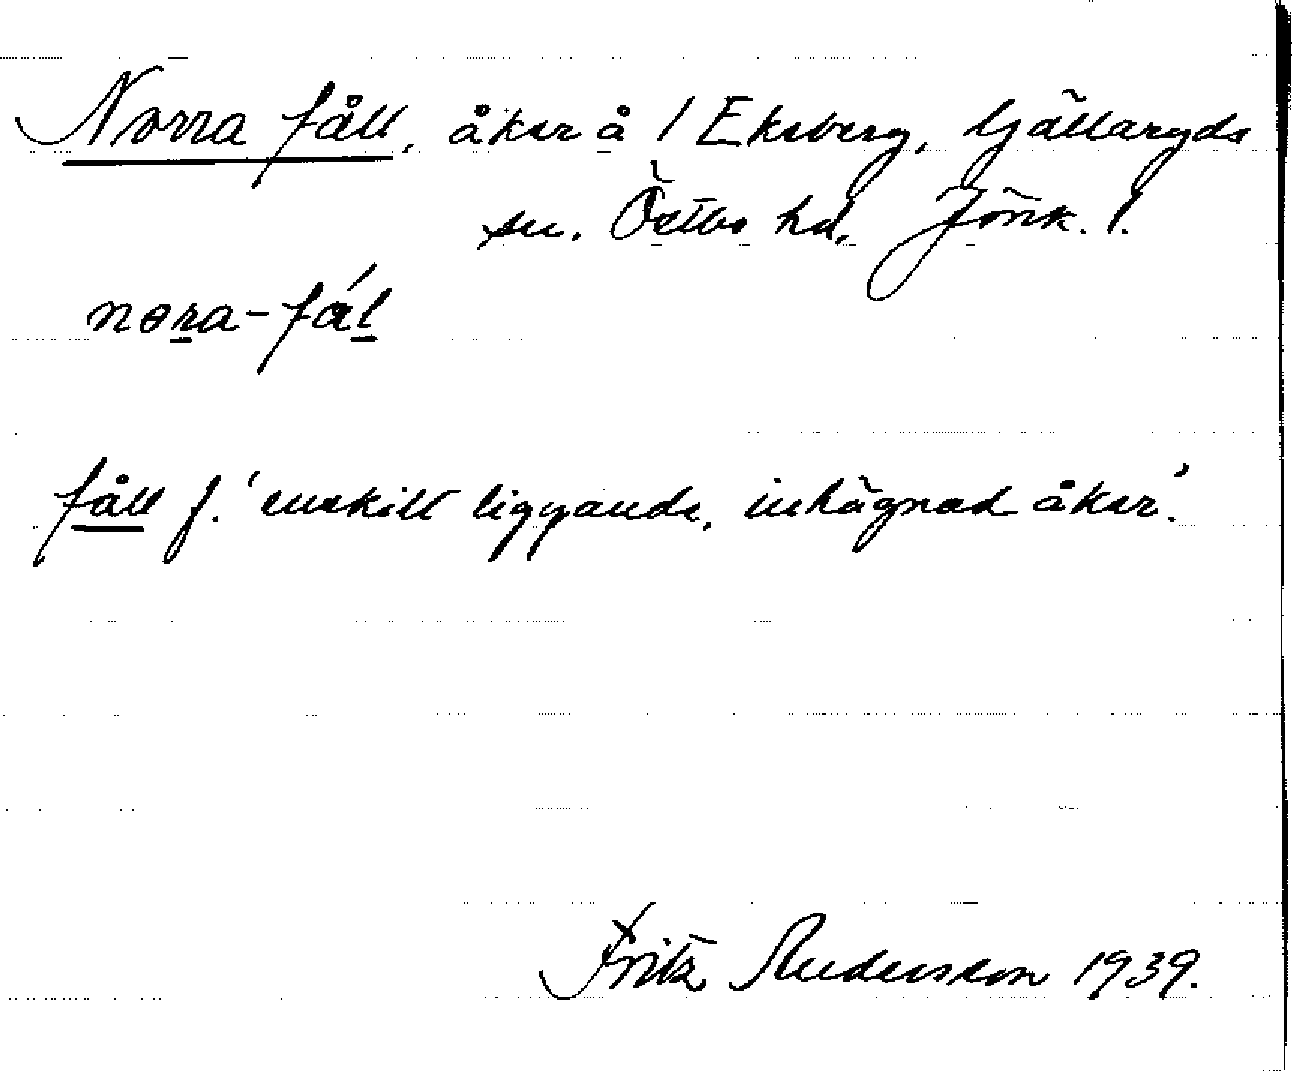 Norra fåll, åker å 1 Ekeberg, Gällaryds
sn. Östbo hd, Jönk. l.
nɵra-fál
fåll f. 'enskilt liggande, inhägnad åker'.
Fritz Andersson 1939.